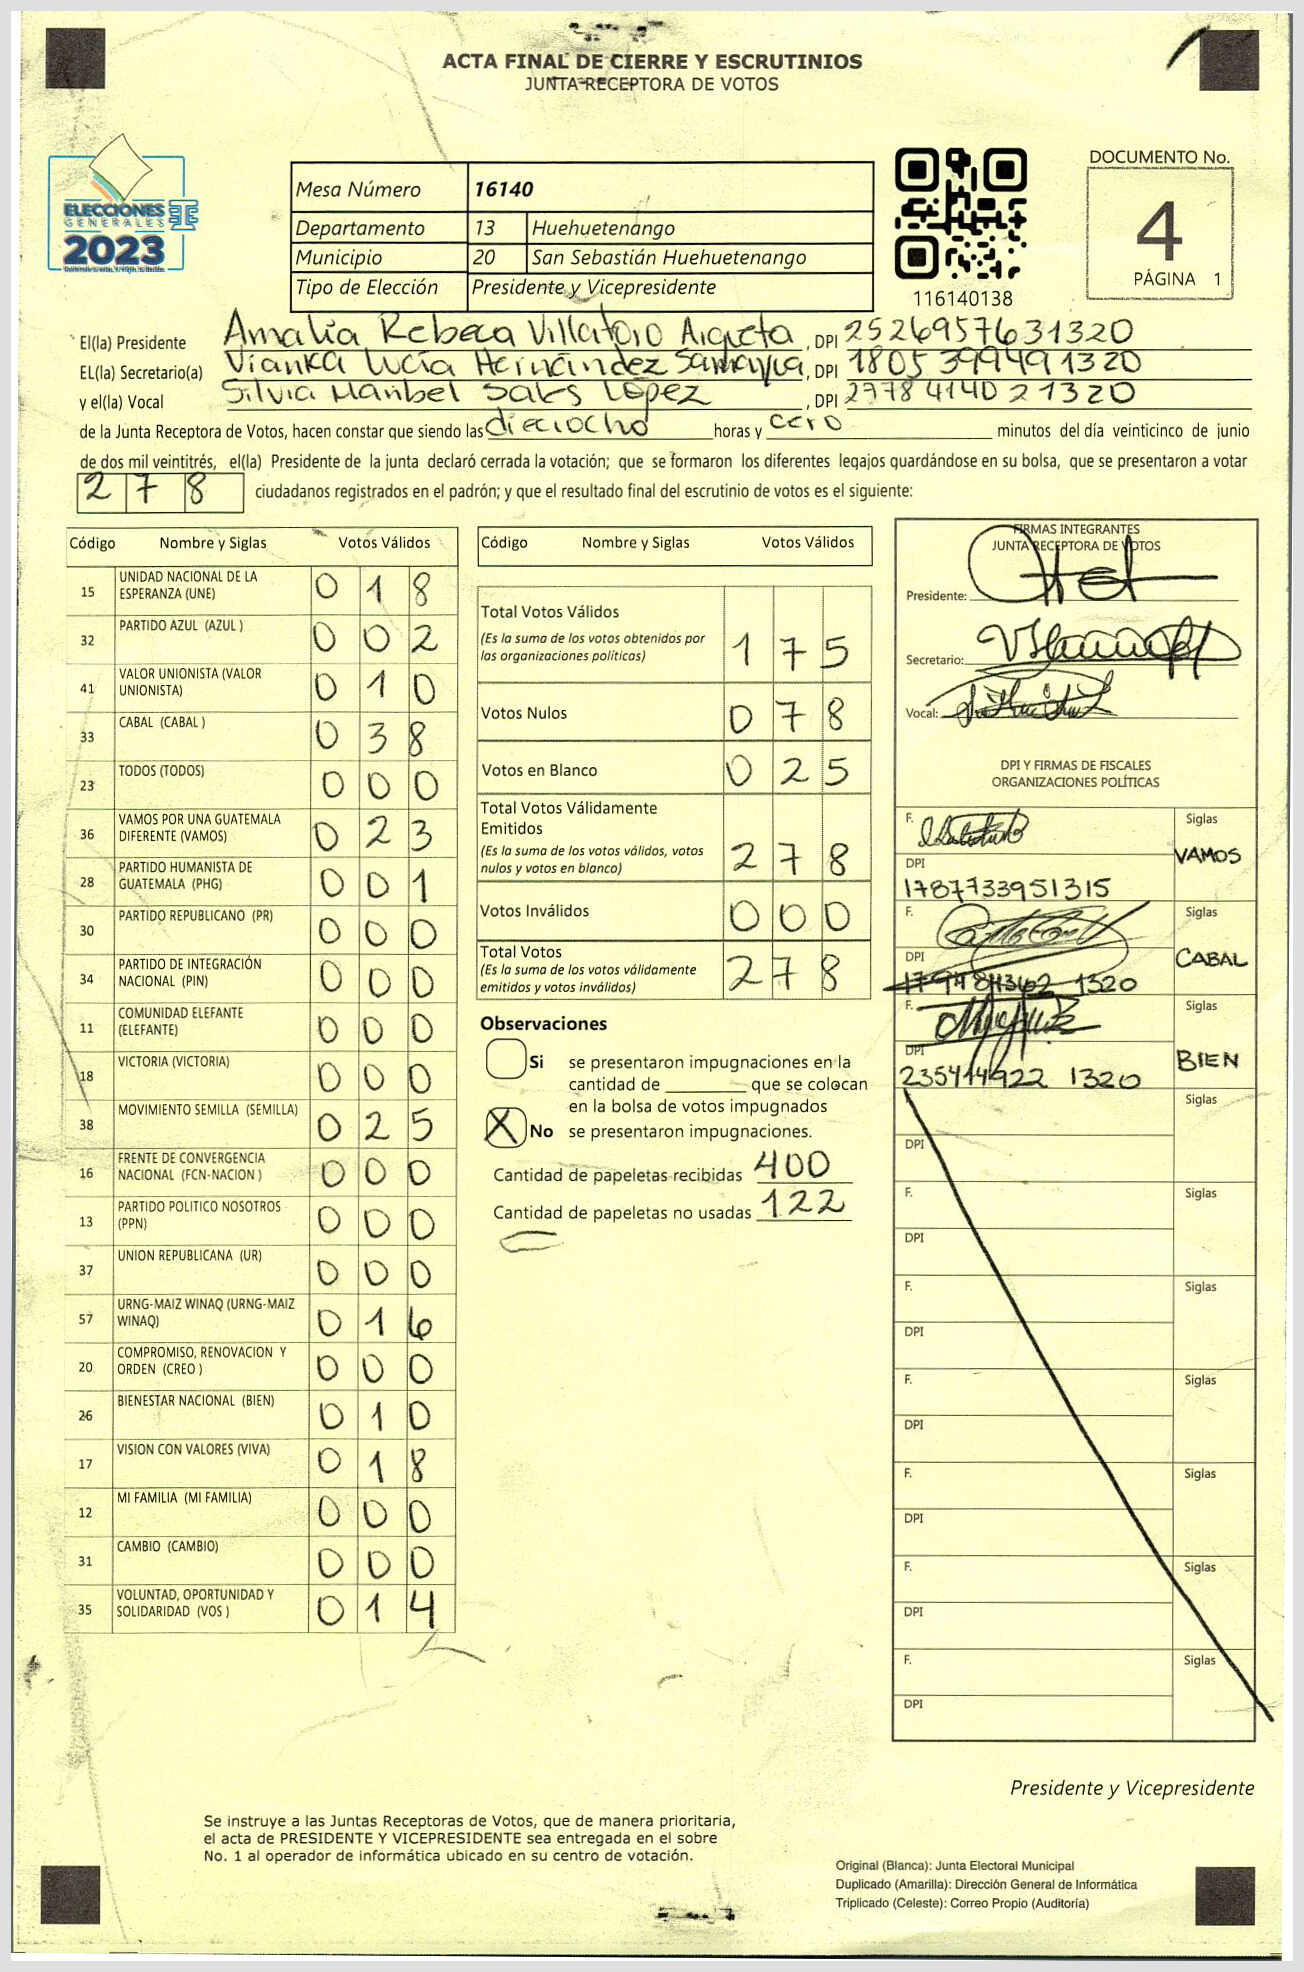 ACTA FINAL DE CIERRE Y ESCRUTINIOS
JUNTA RECEPTORA DE VOTOS
ELECCIONES
GENERALES
2023
Mesa Número 16140
Departamento 13 Huehuetenango
Municipio 20 San Sebastián Huehuetenango
Tipo de Elección Presidente y Vicepresidente
116140138
DOCUMENTO No.
4
PÁGINA 1
El(la) Presidente Amalia Rebeca Villatoro Argueta, DPI 2526957631320
EL(la) Secretario(a) Vianka Lucía Hernández Samayoa, DPI 1805399491320
y el(la) Vocal Silvia Maribel Sales López, DPI 2778414021320
de la Junta Receptora de Votos, hacen constar que siendo las dieciocho horas y cero minutos del día veinticinco de junio
de dos mil veintitrés, el(la) Presidente de la junta declaró cerrada la votación; que se formaron los diferentes legajos guardándose en su bolsa, que se presentaron a votar
278 ciudadanos registrados en el padrón; y que el resultado final del escrutinio de votos es el siguiente:
Código Nombre y Siglas Votos Válidos
15 UNIDAD NACIONAL DE LA ESPERANZA (UNE) 018
32 PARTIDO AZUL (AZUL ) 002
41 VALOR UNIONISTA (VALOR UNIONISTA) 010
33 CABAL (CABAL ) 038
23 TODOS (TODOS) 000
36 VAMOS POR UNA GUATEMALA DIFERENTE (VAMOS) 023
28 PARTIDO HUMANISTA DE GUATEMALA (PHG) 001
30 PARTIDO REPUBLICANO (PR) 000
34 PARTIDO DE INTEGRACIÓN NACIONAL (PIN) 000
11 COMUNIDAD ELEFANTE (ELEFANTE) 000
18 VICTORIA (VICTORIA) 000
38 MOVIMIENTO SEMILLA (SEMILLA) 025
16 FRENTE DE CONVERGENCIA NACIONAL (FCN-NACION ) 000
13 PARTIDO POLITICO NOSOTROS (PPN) 000
37 UNION REPUBLICANA (UR) 000
57 URNG-MAIZ WINAQ (URNG-MAIZ WINAQ) 016
20 COMPROMISO, RENOVACION Y ORDEN (CREO ) 000
26 BIENESTAR NACIONAL (BIEN) 010
17 VISION CON VALORES (VIVA) 018
12 MI FAMILIA (MI FAMILIA) 000
31 CAMBIO (CAMBIO) 000
35 VOLUNTAD, OPORTUNIDAD Y SOLIDARIDAD (VOS ) 014
Código Nombre y Siglas Votos Válidos
Total Votos Válidos 175
(Es la suma de los votos obtenidos por
las organizaciones políticas)
Votos Nulos 078
Votos en Blanco 025
Total Votos Válidamente
Emitidos 278
(Es la suma de los votos válidos, votos
nulos y votos en blanco)
Votos Inválidos 000
Total Votos 278
(Es la suma de los votos válidamente
emitidos y votos inválidos)
Observaciones
Si se presentaron impugnaciones en la
cantidad de ________ que se colocan
en la bolsa de votos impugnados
X No se presentaron impugnaciones.
Cantidad de papeletas recibidas 400
Cantidad de papeletas no usadas 122
FIRMAS INTEGRANTES
JUNTA RECEPTORA DE VOTOS
Presidente:
Secretario:
Vocal:
DPI Y FIRMAS DE FISCALES
ORGANIZACIONES POLÍTICAS
F. Siglas
VAMOS
DPI
1787733951315
F. Siglas
CABAL
DPI
1320
F. Siglas
BIEN
DPI
235414922 1320
Siglas
DPI
F. Siglas
DPI
F. Siglas
DPI
F. Siglas
DPI
F. Siglas
DPI
F. Siglas
DPI
F. Siglas
DPI
Presidente y Vicepresidente
Se instruye a las Juntas Receptoras de Votos, que de manera prioritaria,
el acta de PRESIDENTE Y VICEPRESIDENTE sea entregada en el sobre
No. 1 al operador de informática ubicado en su centro de votación.
Original (Blanca): Junta Electoral Municipal
Duplicado (Amarilla): Dirección General de Informática
Triplicado (Celeste): Correo Propio (Auditoría)